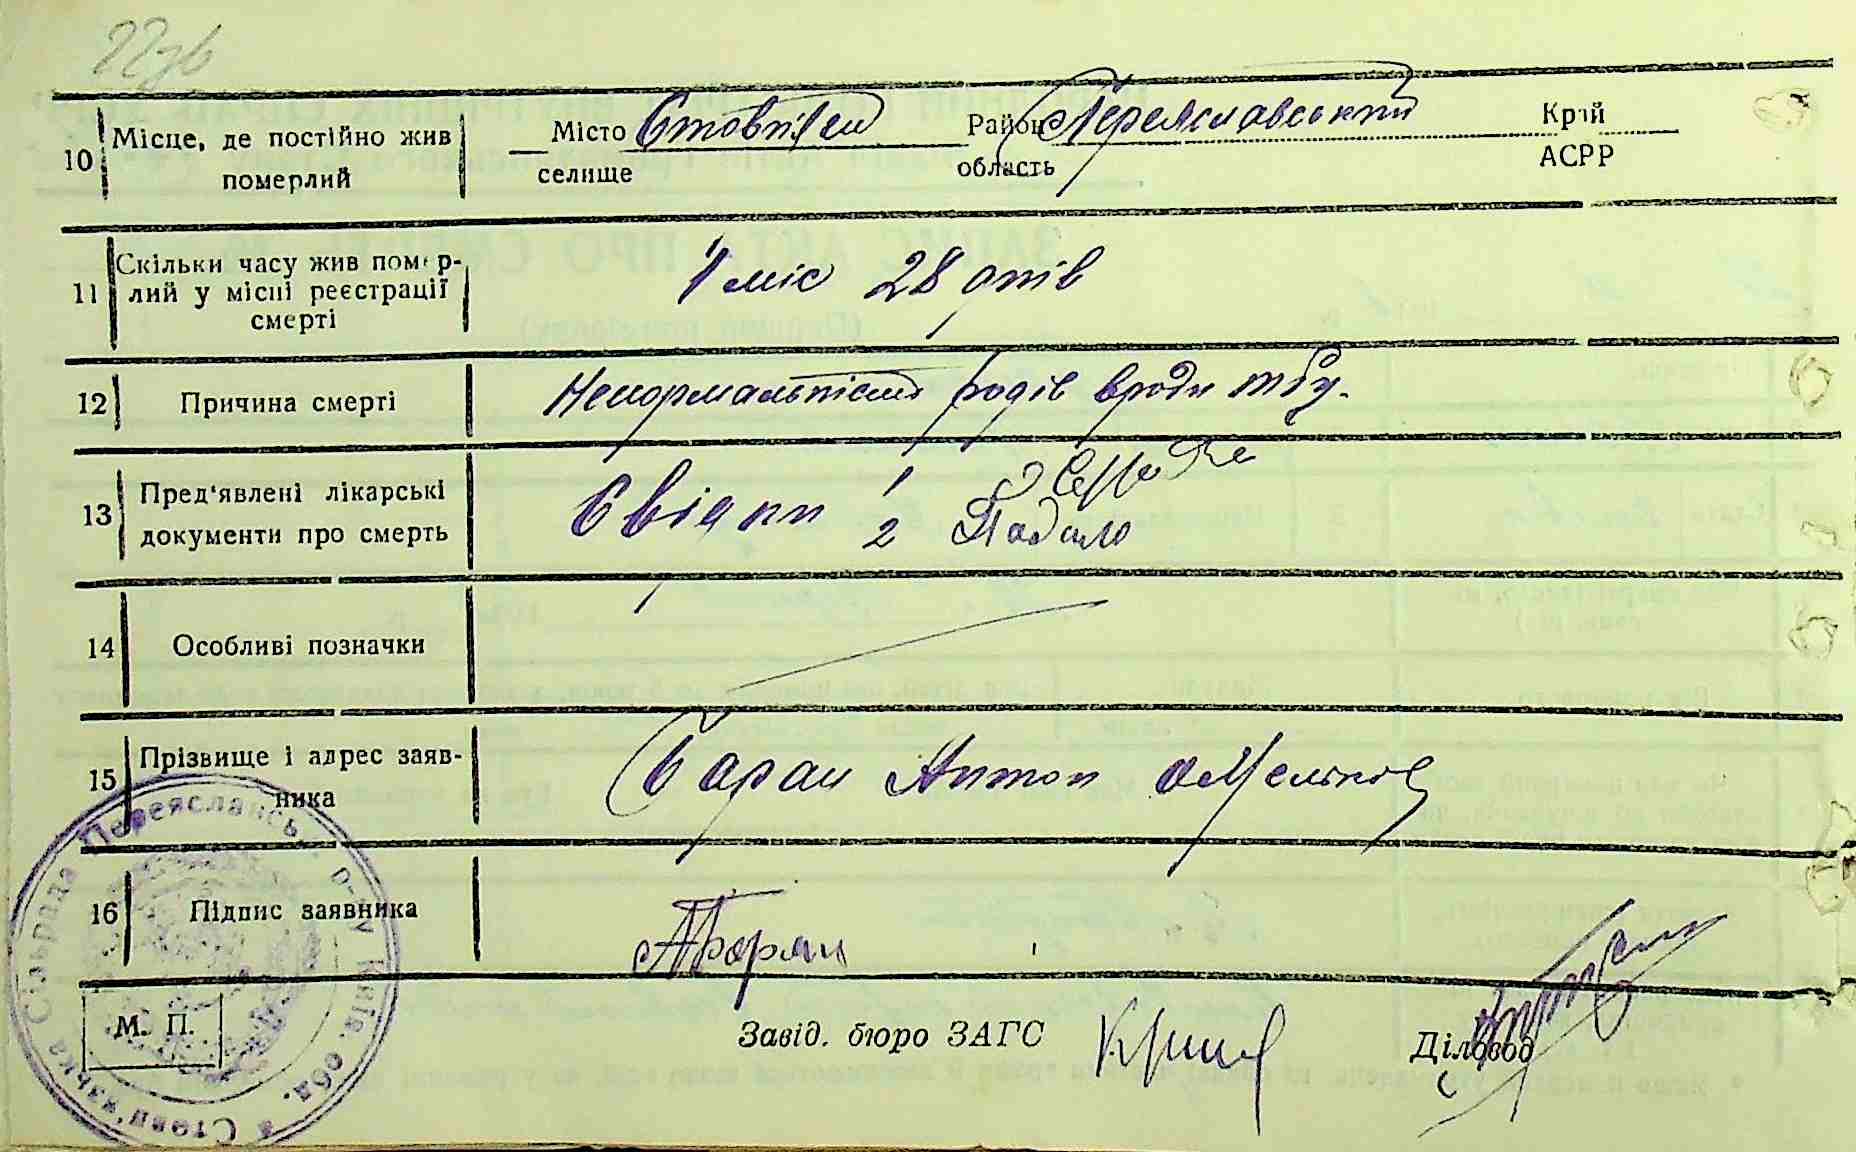 10 Місце, де постійно жив померлий
Місто селище Стовпяги Район область Переяславський Край АСРР
11 Скільки часу жив помер-
лий у місці реєстрації
смерті
1 міс 28 днів
12 Причина смерті
Ненормальність родів вроди
13 Пред'явлені лікарські
документи про смерть
Свідки 1
2
14 Особливі позначки
15 Прізвище і адрес заяв-
ника
Баран Антон Омельков
16 Підпис заявника
АБаран
М. П.
Завід. бюро ЗАГС
Діловод
Стовп'язька Сільрада Переяславськ. р-ну Київ. обл.